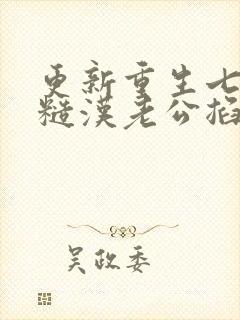 更新重生七
糙漢老公掐
吴政委